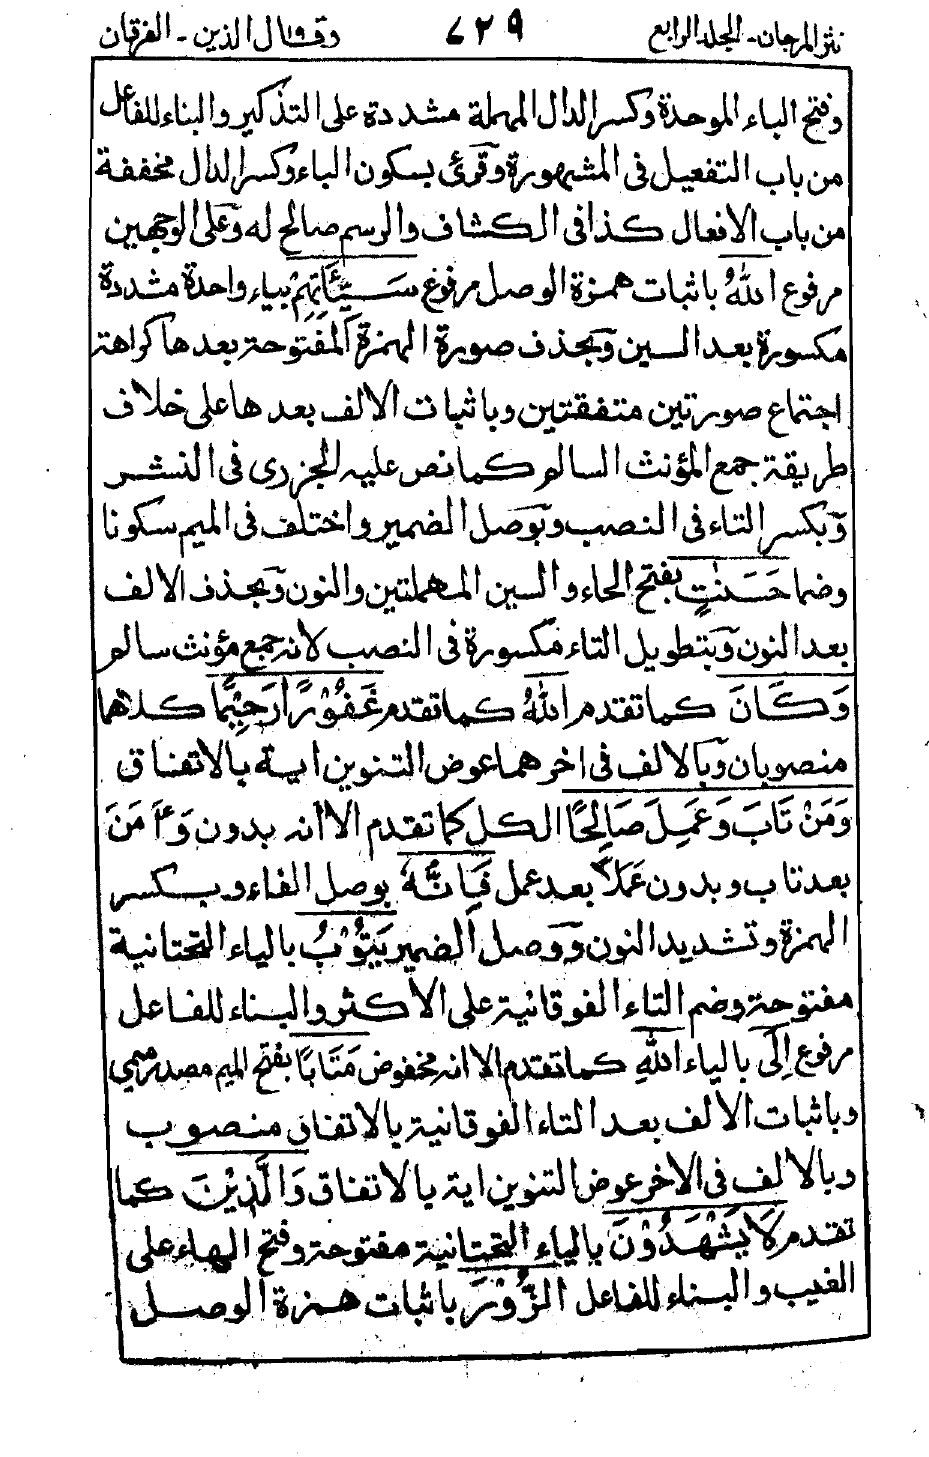 نثر المرجان - المجلد الرابع ٧٢٩ وقال الذين ١٩ - الفرقان
وفتح الباء الموحدة وكسر الدال المهملة مشددة على التذكير والبناء للفاعل
من باب التفعيل فى المشهورة وقرئ بسكون الباء وكسر الدال مخففة
من باب الافعال كذا فى الكشاف والرسم صالح له وعلى الوجهين
مرفوع اللهُ باثبات همزة الوصل مرفوع سَيِّأٰتِهِمْ بياء واحدة مشددة
مكسورة بعد السين وبحذف صورة الهمزة المفتوحة بعدها كراهة
اجتماع صورتين متفقتين وباثبات الالف بعدها على خلاف
طريقة جمع المؤنث السالم كما نص عليه الجزرى فى النشر
وبكسر التاء فى النصب وبوصل الضمير واختلف فى الميم سكونا
وضما حَسَنٰتٍ بفتح الحاء والسين المهملتين والنون وبحذف الالف
بعد النون وبتطويل التاء مكسورة فى النصب لانه جمع مؤنث سالم
وَكَانَ كما تقدم اللهُ كما تقدم غَفُوْرًا رَحِيْمًا كلاهما
منصوبان وبالالف فى اخرهما عوض التنوين اية بالاتفاق
وَمَنْ تَابَ وَعَمِلَ صَالِحًا الكل كما تقدم الا انه بدون وَءَامَنَ
بعد تاب وبدون عَمَلًا بعد عمل فَاِنَّهٗ بوصل الفاء وبكسر
الهمزة وتشديد النون ووصل الضمير يَتُوْبُ بالياء التحتانية
مفتوحة وضم التاء الفوقانية على الاكثر والبناء للفاعل
مرفوع اِلَى بالياء اللهِ كما تقدم الا انه مخفوض مَتَابًا بفتح الميم مصدر ميمي
وباثبات الالف بعد التاء الفوقانية بالاتفاق منصوب
وبالالف فى الاخر عوض التنوين اية بالاتفاق وَالَّذِيْنَ كما
تقدم لَا يَشْهَدُوْنَ بالياء التحتانية مفتوحة وفتح الهاء على
الغيب والبناء للفاعل الزُّوْرَ باثبات همزة الوصل